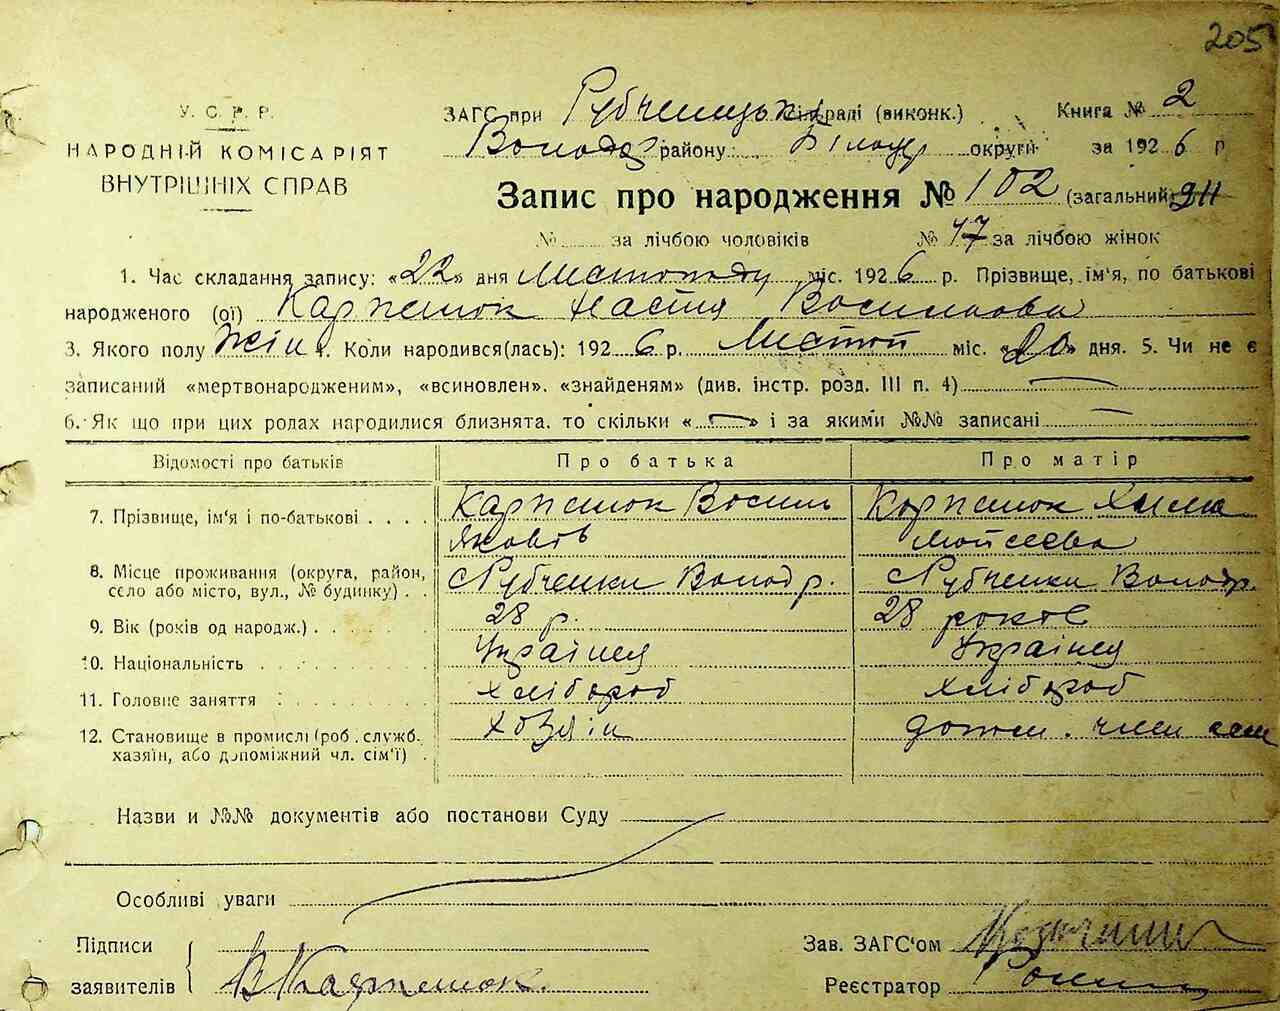 205
У.С.Р.Р.
НАРОДНІЙ КОМІСАРІЯТ
ВНУТРІШНІХ СПРАВ
ЗАГС при Рубченецьк сільраді (виконк.) Книга № 2
Володар району Білоцер округи за 1926 р
Запис про народження № 102 (загальний)
№ за лічбою чоловіків № 47 за лічбою жінок
1. Час складання запису: «22» дня Листопаду міс. 1926 р. Прізвище, ім'я, по батькові
народженого (ої) Карпенюк Настя Василиова
3. Якого полу Жін 4. Коли народився(лась): 1926 р. Листоп міс. «20» дня. 5. Чи не є
записаний «мертвонародженим», «всиновлен», «знайденям» (див. інстр. розд. III п. 4)
6. Як що при цих родах народилися близнята, то скільки « » і за якими №№ записані
Відомості про батьків Про батька Про матір
7. Прізвище, ім'я і по-батькові Карпенюк Василь Карпенюк
Яковів Мойсеєва
8. Місце проживання (округа, район, с Рубченки Волод р. с Рубченки Волод р.
село або місто, вул., № будинку)
9. Вік (років од народж.) 28 р. 28 років
10. Національність Українец Українец
11. Головне заняття хлібороб хлібороб
12. Становище в промислі (роб. служб. хозяїн допом. член сем
хазяїн, або допоміжний чл. сім'ї)
Назви и №№ документів або постанови Суду
Особливі уваги
Підписи Зав. ЗАГС'ом
заявителів В Карпенюк. Реєстратор